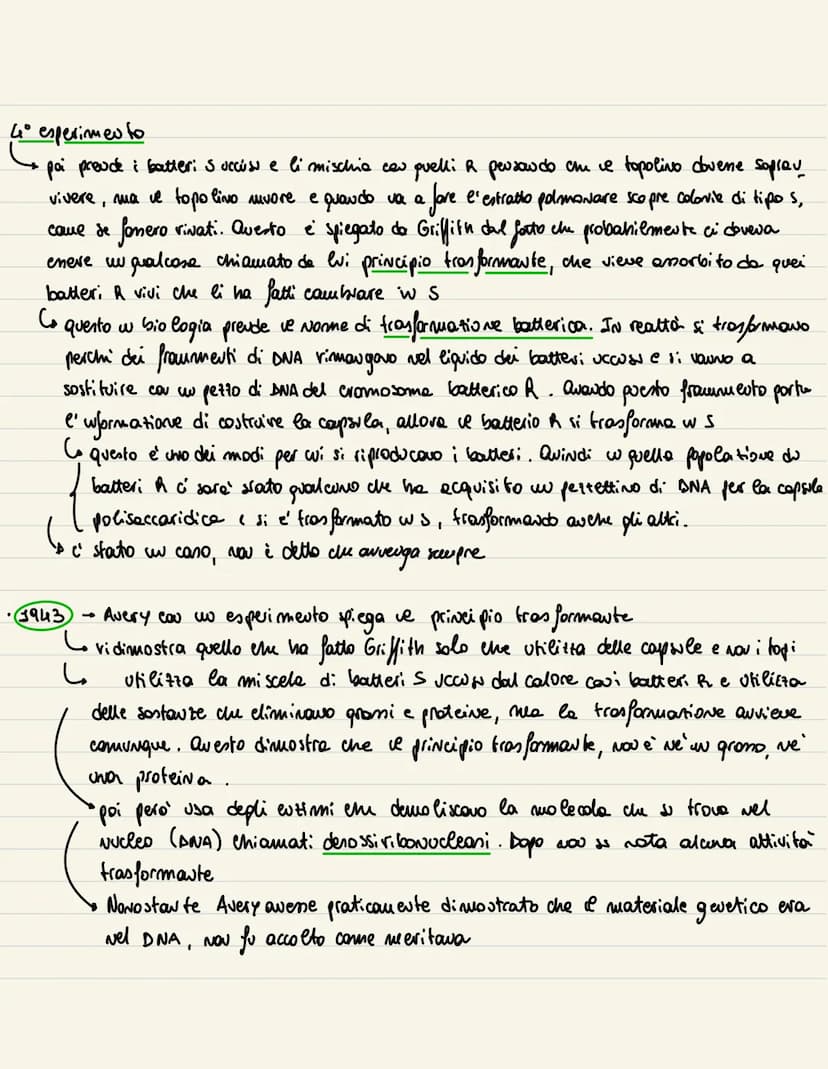 4° esperimento
↳ poi prende i batteri S uccisi e li mischia con quelli R pensando che il topolino dovesse soprav
vivere, ma il topolino muore e quando va a fare l'estratto polmonare scopre colonie di tipo S,
come se fossero rinati. Questo è spiegato da Griffith dal fatto che probabilmente ci doveva
essere un qualcosa chiamato da lui principio trasformante, che viene assorbito da quei
batteri R vivi che li ha fatti cambiare in S
↳ questo in biologia prende il nome di trasformazione batterica. In realtà si trasformano
perché dei frammenti di DNA rimangono nel liquido dei batteri uccisi e si vanno a
sostituire con un pezzo di DNA del cromosoma batterico R. Quando questo frammento porta
l'informazione di costruire la capsula, allora il batterio R si trasforma in S
↳ questo è uno dei modi per cui si riproducono i batteri. Quindi in quella popolazione di
batteri R ci sarà stato qualcuno che ha acquisito un pezzettino di DNA per la capsula
polisaccaridica e si è trasformato in S, trasformando anche gli altri.
↳ c'è stato un caso, non è detto che avvenga sempre
· 1943 → Avery con un esperimento spiega il principio trasformante
↳ ridimostra quello che ha fatto Griffith solo che utilizza delle capsule e non i topi
↳ utilizza la miscela di batteri S uccisi dal calore coi batteri R e utilizza
delle sostanze che eliminano grassi e proteine, ma la trasformazione avviene
comunque. Questo dimostra che il principio trasformante, non è nè un grasso, nè
una proteina.
poi però usa degli enzimi che demoliscono la molecola che si trova nel
nucleo (DNA) chiamati desossiribonucleasi. Dopo non si nota alcuna attività
trasformante
Nonostante Avery avesse praticamente dimostrato che il materiale genetico era
nel DNA, non fu accolto come meritava